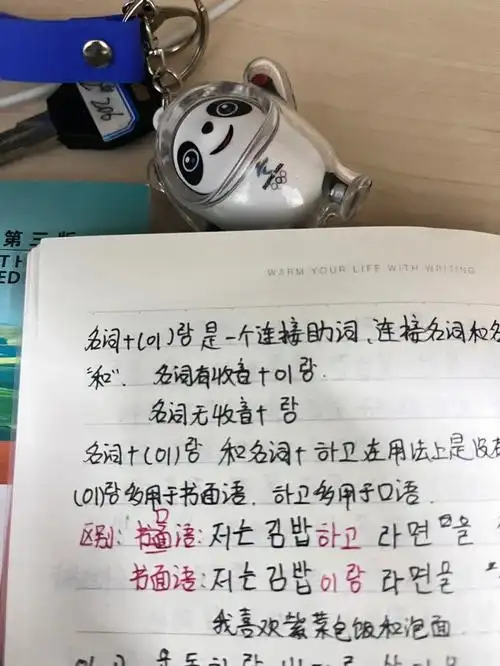 第三版
TH
ED
WARM YOUR LIFE WITH WRITING
名词+(이)랑 是一个连接助词、连接名词和名
"和". 名词有收音+이랑.
名词无收音+ 랑
名词+(이)랑 和名词+ 하고 在用法上是没有
(이)랑多用于书面语. 하고多用于口语.
区别: 书面语: 저는 김밥하고 라면을
书面语: 저는 김밥이랑 라면을
我喜欢紫菜包饭和泡面.